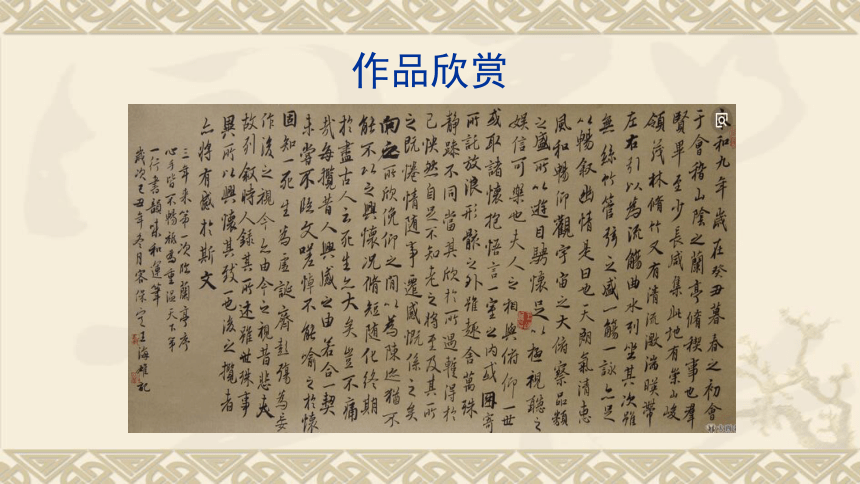 作品欣赏
永和九年歲在癸丑暮春之初會
于會稽山陰之蘭亭脩稧事也羣
賢畢至少長咸集此地有崇山峻
領茂林脩竹又有清流激湍暎帶
左右引以為流觴曲水列坐其次雖
無絲竹管弦之盛一觴一詠亦足
以暢叙幽情是日也天朗氣清惠
風和暢仰觀宇宙之大俯察品類
之盛所以遊目騁懷足以極視聽之
娛信可樂也夫人之相與俯仰一世
或取諸懷抱悟言一室之內或因寄
所託放浪形骸之外雖趣舍萬殊
靜躁不同當其欣於所遇輙得於
己怏然自足不知老之將至及其所
之既惓情隨事遷感慨係之矣
向之所欣俛仰之間以為陳迹猶不
能不以之興懷況脩短隨化終期
於盡古人云死生亦大矣豈不痛
哉每攬昔人興感之由若合一契
未嘗不臨文嗟悼不能喻之於懷
固知一死生為虛誕齊彭殤為妄
作後之視今亦由今之視昔悲夫
故列叙時人錄其所述雖世殊事
異所以興懷其致一也後之攬者
亦將有感於斯文
三年來第一次臨蘭亭序
心手皆不暢為重溫天下第
一行書韻味和運筆
歲次己丑年冬月容保定王海雄記